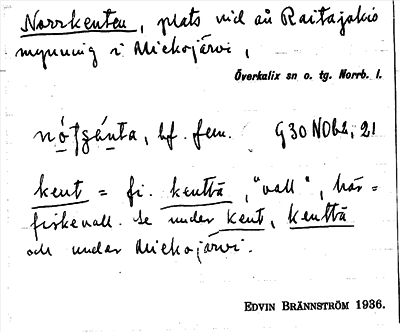 Norrkenten, plats vid ån Raitajokis
mynning i Miekojärvi,
Överkalix sn o. tg. Norrb. l.
bf. fem. G30NDb2,21
kent = fi. kenttä, "vall", här =
fiskevall. Se under kent, kenttä
och under Miekojärvi.
EDVIN BRÄNNSTRÖM 1936.